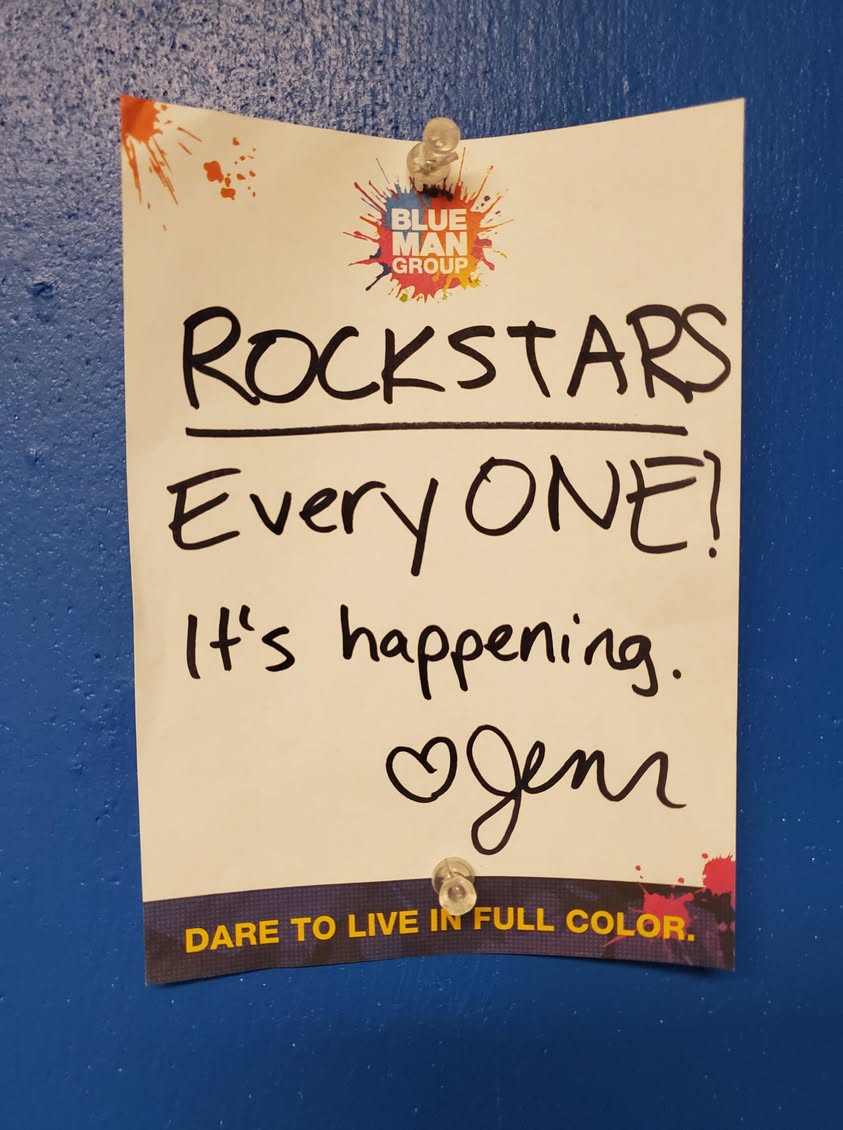 BLUE
MAN
GROUP
ROCKSTARS
Every ONE!
It's happening.
♡ Jenn
DARE TO LIVE IN FULL COLOR.